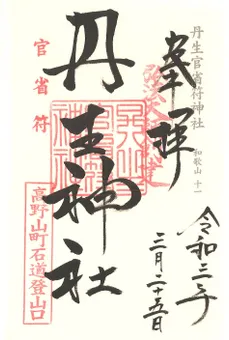 丹生官省符神社
和歌山 十一
奉拝
弘法大師創建
官省符
丹生神社
令和三年
三月二十五日
高野山町石道登山口